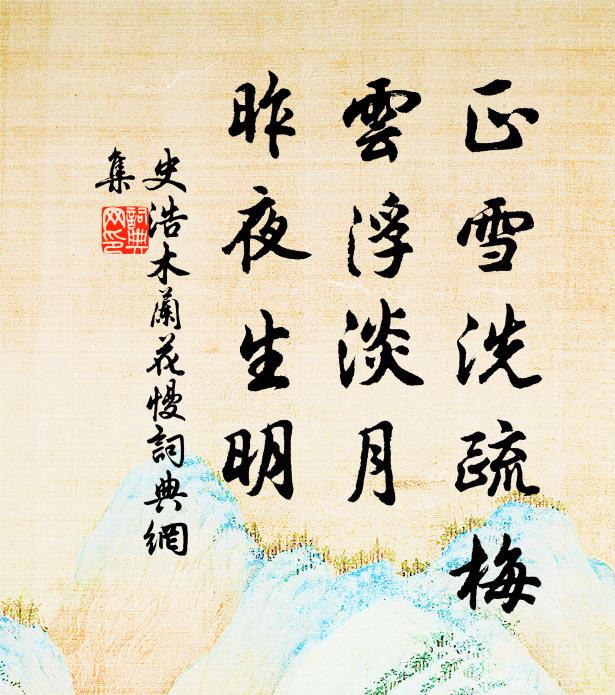 正雪洗疏梅
雲浮淡月
昨夜生明
史浩木蘭花慢詞典網
集
詞典
网印